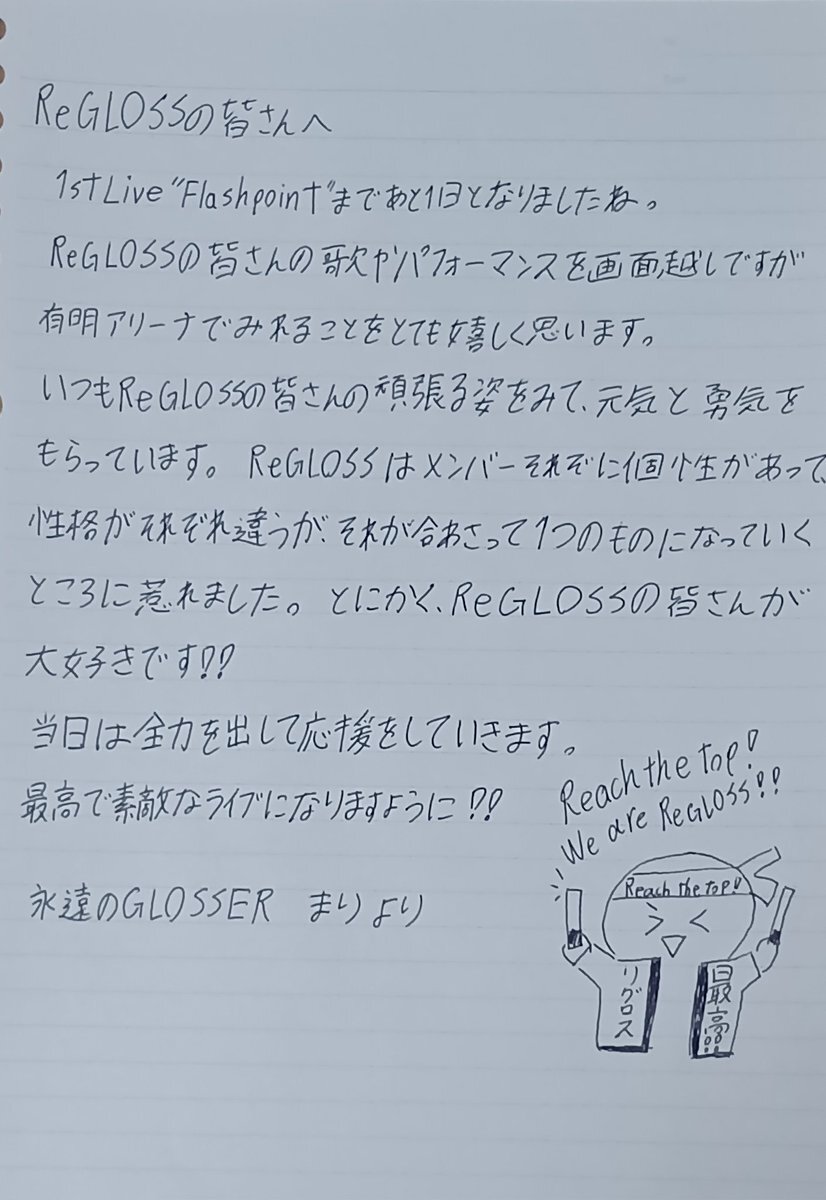 ReGLOSSの皆さんへ
1stLive"Flashpoint"まであと1日となりましたね。
ReGLOSSの皆さんの歌やパフォーマンスを画面越しですが
有明アリーナでみれることをとても嬉しく思います。
いつもReGLOSSの皆さんの頑張る姿をみて、元気と勇気を
もらっています。ReGLOSSはメンバーそれぞに個性があって、
性格がそれぞれ違うが、それが合わさって1つのものになっていく
ところに惹れました。とにかく、ReGLOSSの皆さんが
大好きです!!
当日は全力を出して応援をしていきます。
最高で素敵なライブになりますように!!
Reach the top!
We are ReGLOSS!!
永遠のGLOSSER まりより
Reach the top!
リグロス
最高!!